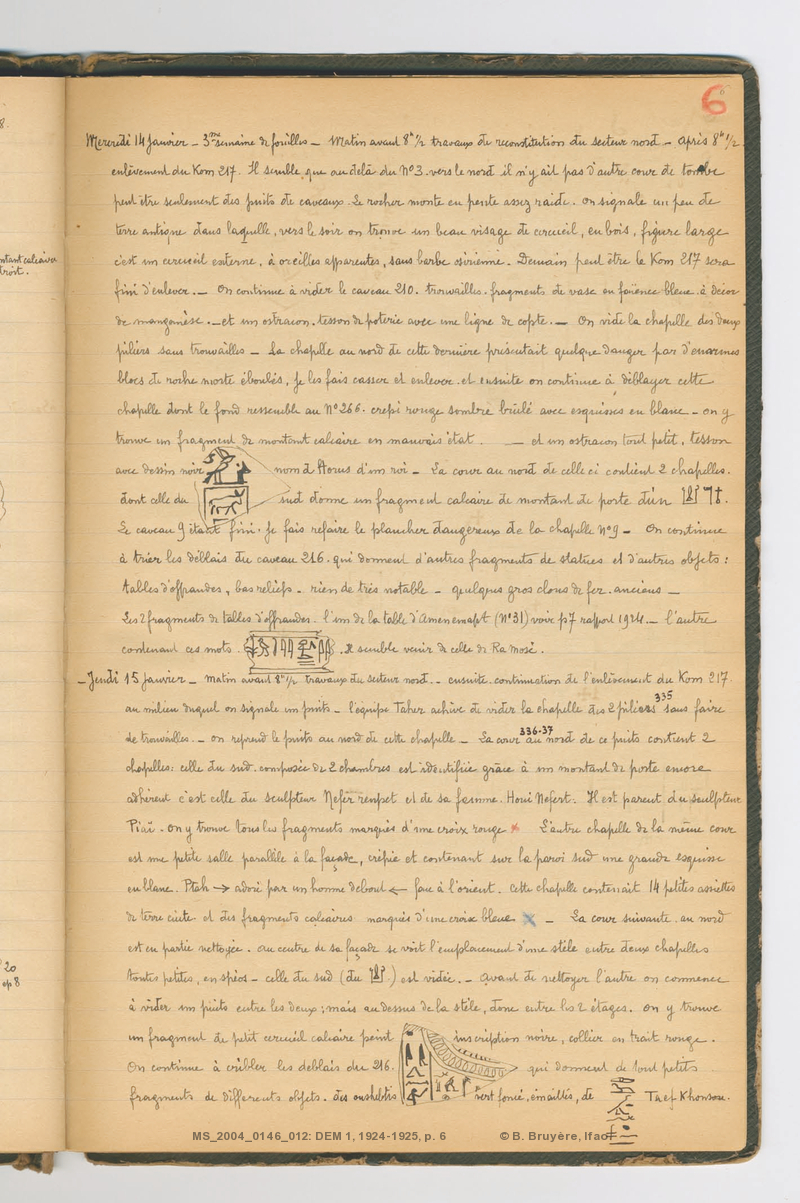 6
Mercredi 14 Janvier – 3me semaine de fouilles – Matin avant 8h ½ travaux de reconstitution du secteur nord – après 8h ½
enlèvement du Kom 217. Il semble que au delà du N°3 vers le nord il n'y ait pas d'autre cour de tombe
peut être seulement des puits de caveaux. Le rocher monte en pente assez raide. on signale un peu de
terre antique dans laquelle, vers le soir on trouve un beau visage de cercueil, en bois, figure large
c'est un cercueil externe, à oreilles apparentes, sans barbe osirienne. Demain peut être le Kom 217 sera
fini d'enlever. – On continue à vider le caveau 210. trouvailles. fragments de vase en faïence bleue à décor
de manganèse. – et un ostracon. tesson de poterie avec une ligne de copte. – On vide la chapelle des deux
piliers sans trouvailles – La chapelle au nord de cette dernière présentait quelque danger par d'énormes
blocs de roche morte éboulés, je les fais casser et enlever et ensuite on continue à déblayer cette
chapelle dont le fond ressemble au N° 266. crépi rouge sombre brûlé avec esquisses en blanc – on y
trouve un fragment de montant calcaire en mauvais état. — et un ostracon tout petit, tesson
avec dessin noir nom d'Horus d'un roi – La cour au nord de celle ci contient 2 chapelles.
dont celle du sud donne un fragment calcaire de montant de porte d'un
Le caveau 9 étant fini, je fais refaire le plancher dangereux de la chapelle N°9 – On continue
à trier les déblais du caveau 216. qui donnent d'autres fragments de statues et d'autres objets :
tables d'offrandes, bas reliefs – rien de très notable – quelques gros clous de fer anciens –
Les 2 fragments de tables d'offrandes. l'un de la table d'Amenemapt (N°31) voir p7 rapport 1924. – l'autre
contenant ces mots. Il semble venir de celle de Ra mosé.
– Jeudi 15 janvier – Matin avant 8h ½ travaux du secteur nord. – ensuite continuation de l'enlèvement du Kom 217.
au milieu duquel on signale un puits – l'équipe Taher achève de vider la chapelle des 2 piliers 335 sans faire
de trouvailles. – on reprend le puits au nord de cette chapelle – La cour 336-37 au nord de ce puits contient 2
chapelles: celle du sud composée de 2 chambres est identifiée grâce à un montant de porte encore
adhérent c'est celle du sculpteur Nefer renpet et de sa femme Houi Nefert. Il est parent du sculpteur
Piaï. on y trouve tous les fragments marqués d'une croix rouge x L'autre chapelle de la même cour
est une petite salle parallèle à la façade, crépie et contenant sur la paroi sud une grande esquisse
en blanc. Ptah → adoré par un homme debout ← face à l'orient. Cette chapelle contenait 14 petites assiettes
de terre cuite et des fragments calcaires marqués d'une croix bleue x – La cour suivante au nord
est en partie nettoyée. au centre de sa façade se voit l'emplacement d'une stèle entre deux chapelles
toutes petites, en spéos – celle du sud (du ) est vidée. – Avant de nettoyer l'autre on commence
à vider un puits entre les deux ; mais au dessus de la stèle, donc entre les 2 étages. on y trouve
un fragment de petit cercueil calcaire peint inscription noire, collier en trait rouge.
On continue à cribler les déblais du 216. qui donnent de tout petits
fragments de différents objets. des oushebtis vert foncé, émaillés, de Ta ef Khonsou.
MS_2004_0146_012: DEM 1, 1924-1925, p. 6 © B. Bruyère, Ifao